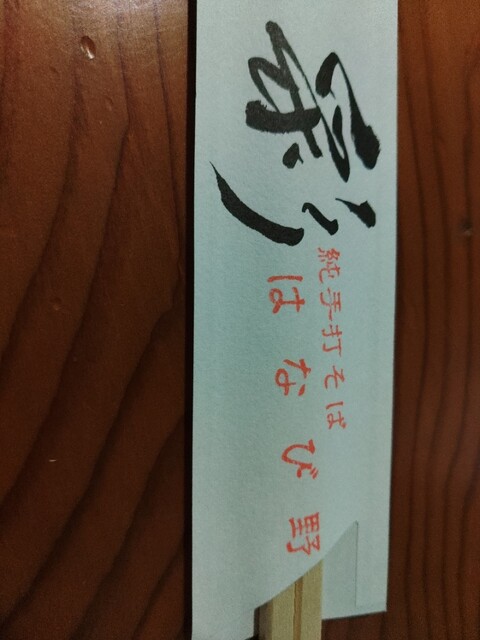 彩
純手打そば
はなび野